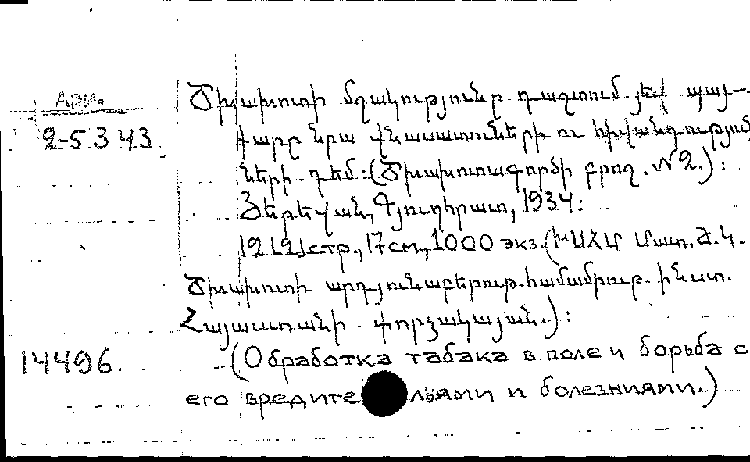 Арм.
2-5343
Ծխախոտի մշակությունը դաշտում յեվ պայ-
քարը նրա վնասատուների ու հիվանդություն
ների դեմ: (Ծխախոտագործի բրոշ. №2.):
Յերեվան, Գյուղհրատ, 1934:
19 [2] стр., 17см., 1000 экз. (ԽՍՀՄ Մատ. Ժ. Կ.
Ծխախոտի արդյունաբերութ. համամիութ. ինստ.
Հայաստանի փորձակայան.):
14496. (Обработка табака в поле и борьба с
его вредителями и болезниями.)